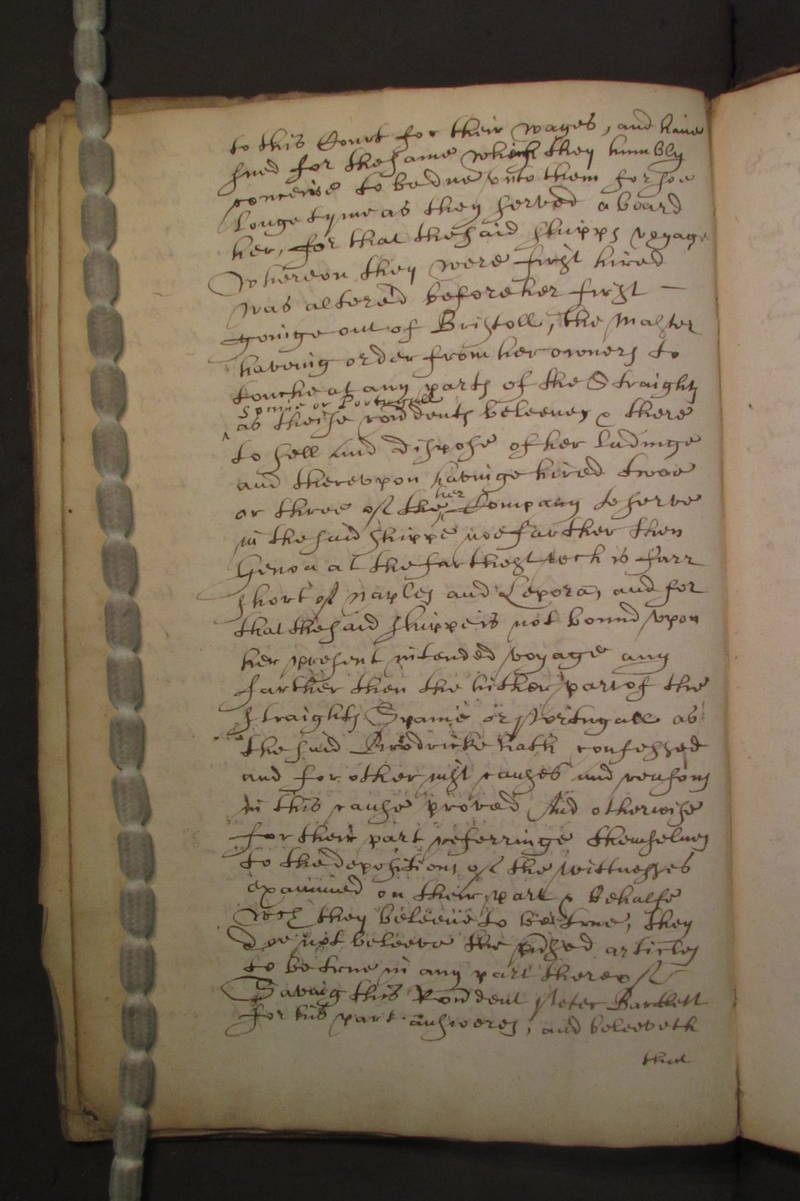 to this Court for their wages, and haue
sued for the same which they humbly
conceive to bedue vnto them for soe
longe tyme as they served aboard
her, for that the said shipps voyage
Whereon they were first hired
was altered before her first —
goinge out of Bristoll, the Master
haveing order from her owners to
touche at any parts of the Straights
Spaine or Portugall
^ as theise rondents beleeven & there
to sell and dispose of her ladinge
and therevpon havinge hired twoe
her
or three of the Company to serve
in the said shippe noe farther then
Genoa at the farthest wch is farr
short of Naples and Legora, and for
that the said shippe is not bound vpon
her present intended voyage any
farther then the hither part of the
straights Spaine or Portugall as
the said Brodricke hath confessed
and for other iust causes and reasons
in this cause proved And otherwise
for their part referringe themselues
to the depositions of the wittnesses
examined on their part & behalfe
Wch they beleeue to be true, they
doe not beleeve the articles
to be true in any part thereof
Saveing this Rondent Peter Bartlett
for his part answeres, and beleeveth
that